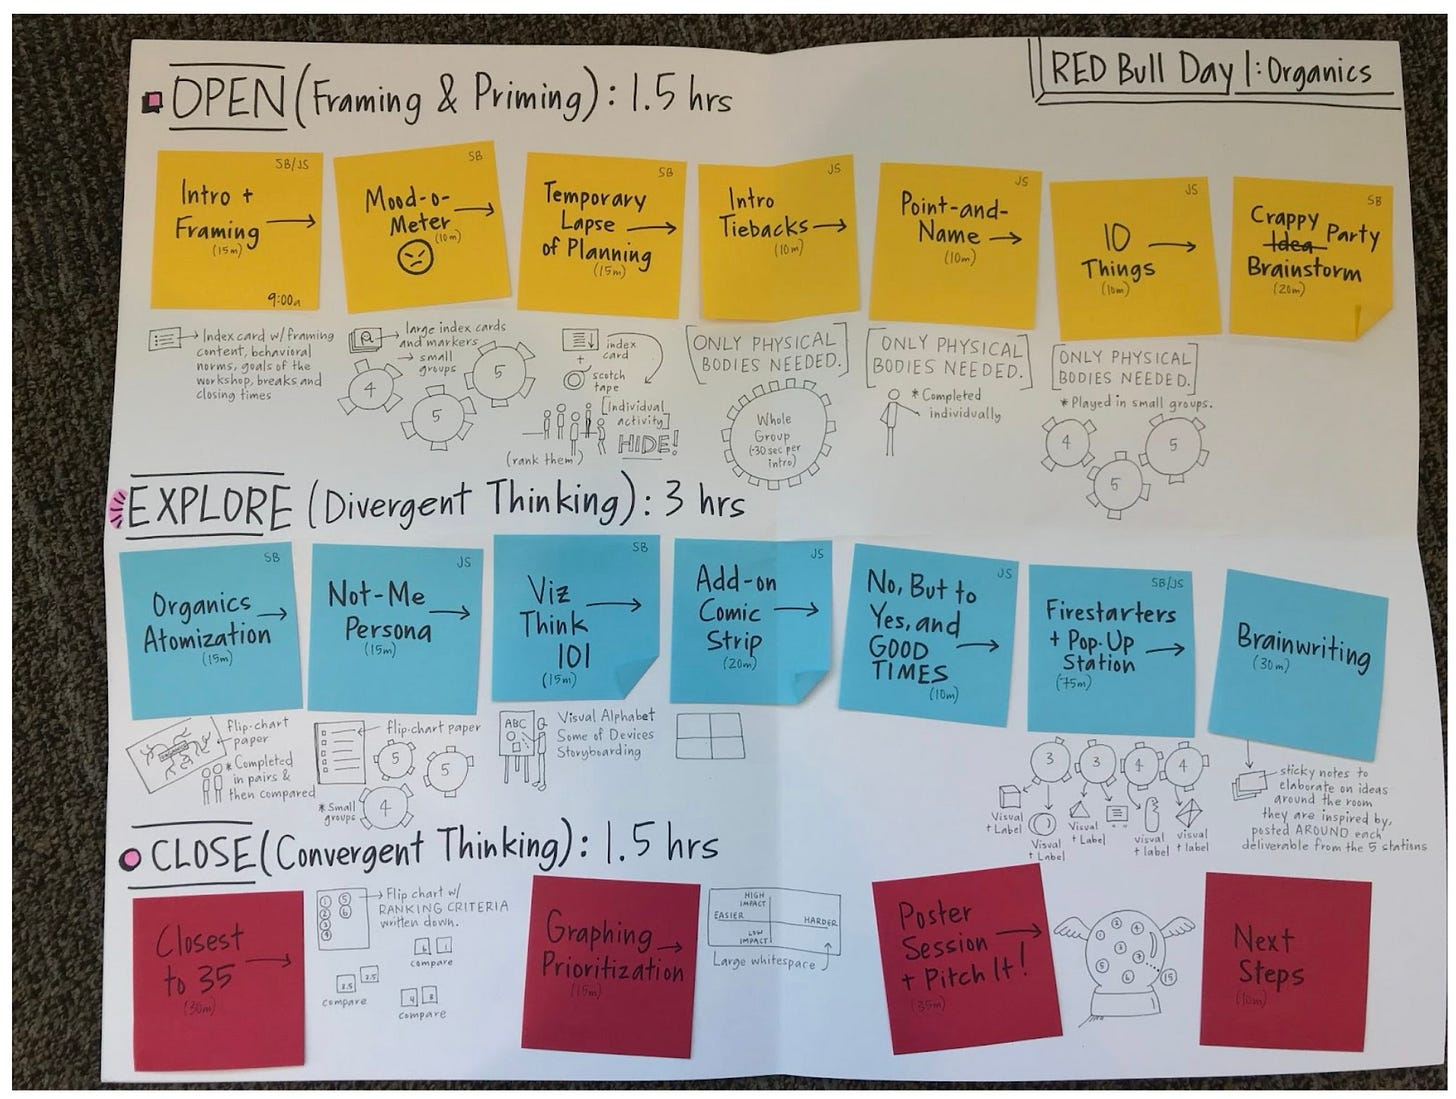 RED Bull Day 1: Organics
OPEN (Framing & Priming): 1.5 hrs
SB/JS
Intro +
Framing
(15m)
9:00a
SB
Mood-o-
Meter
(10m)
SB
Temporary
Lapse
of Planning
(15m)
JS
Intro
Tiebacks
(10m)
JS
Point-and-
Name
(10m)
JS
10
Things
(10m)
SB
Crappy Party
Idea
Brainstorm
(20m)
Index card w/framing
content, behavioral
norms, goals of the
workshop, breaks and
closing times
large index cards
and markers
small
groups
4
5
5
index
card
+
scotch
tape
[Individual
activity]
HIDE!
(rank them)
[ONLY PHYSICAL
BODIES NEEDED.]
Whole
Group
(~30 sec per
intro)
[ONLY PHYSICAL
BODIES NEEDED.]
* Completed
individually
[ONLY PHYSICAL
BODIES NEEDED.]
* Played in small groups.
4
5
5
EXPLORE (Divergent Thinking): 3 hrs
SB
Organics
Atomization
(15m)
JS
Not-Me
Persona
(15m)
SB
Viz
Think
101
(15m)
JS
Add-on
Comic
Strip
(20m)
JS
No, But to
Yes, and
GOOD
TIMES
(10m)
SB/JS
Firestarters
+ Pop-Up
Station
(75m)
Brainwriting
(30m)
flip-chart
paper
* Completed
in pairs &
then compared
flip-chart paper
5
5
4
* Small
groups
ABC
Visual Alphabet
Some of Devices
Storyboarding
3
3
4
4
Visual
+ Label
Visual
+ Label
Visual
+ Label
visual
+ label
visual
+ label
sticky notes to
elaborate on ideas
around the room
they are inspired by,
posted AROUND each
deliverable from the 5 stations
CLOSE (Convergent Thinking): 1.5 hrs
Closest
to 35
(30m)
1
5
2
6
3
4
Flip chart w/
RANKING CRITERIA
written down.
compare
3.5
2.5
compare
4
3
compare
Graphing
Prioritization
(15m)
HIGH
IMPACT
EASIER
HARDER
LOW
IMPACT
Large whitespace
Poster
Session
+ Pitch It!
(35m)
1
2
4
3
7
5
6
15
Next
Steps
(10m)